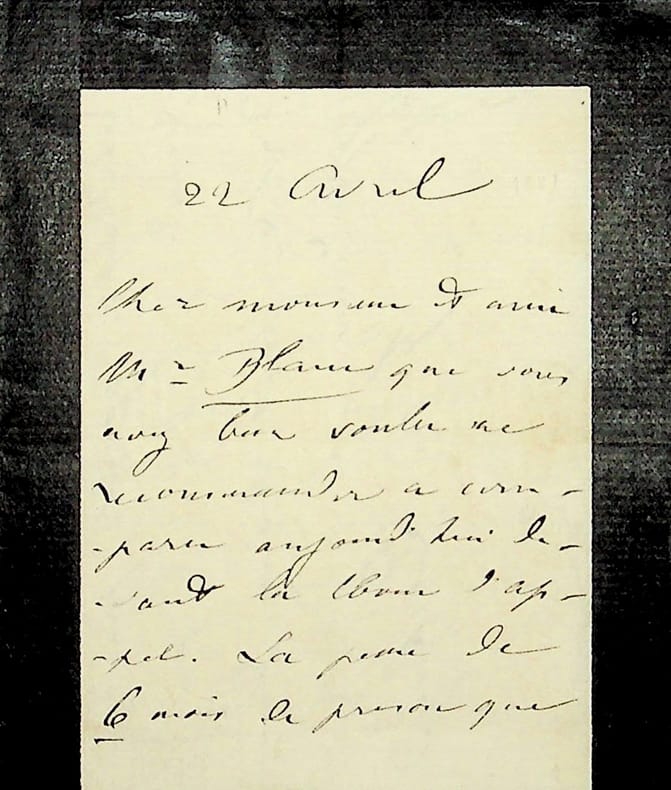 22 Avril
Cher monsieur et ami
Mr Blanc que vous
avez bien voulu me
recommander a com-
-paru aujourd'hui de-
-vant la Cour d'ap-
-pel. La peine de
6 mois de prison que